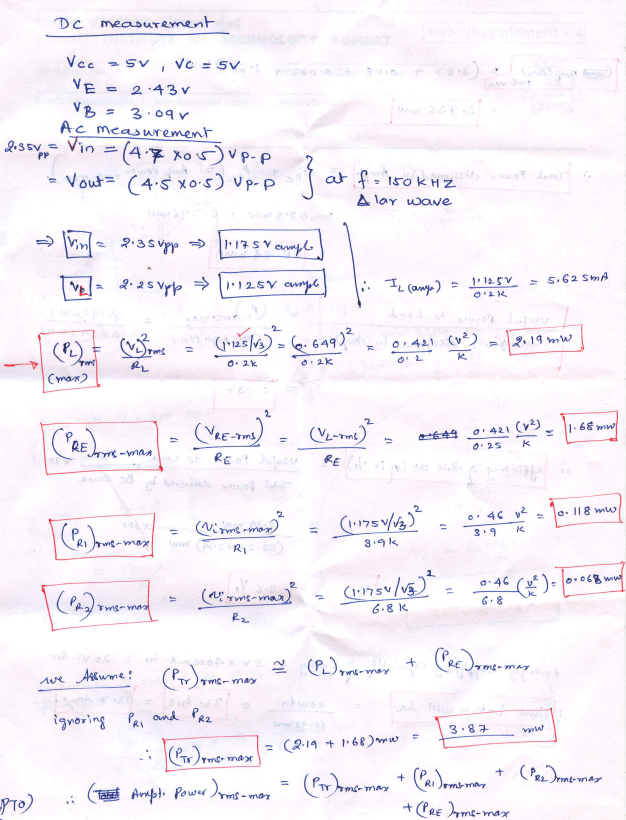 DC measurement
Vcc = 5V , VC = 5V
VE = 2.43V
VB = 3.09V
AC measurement
2.35Vpp = Vin = (4.7 x0.5) Vp-p
= Vout = (4.5 x0.5) Vp-p } at f = 150KHZ
Δlar wave
⇒ Vin = 2.35Vpp ⇒ 1.175V ampl
VL = 2.25Vpp ⇒ 1.125V ampl ∴ IL(amp) = 1.125V/0.2K = 5.625mA
→ (PL)rms (max) = (VL)²rms/RL = (1.125/√3)²/0.2K = (0.649)²/0.2K = 0.421/0.2 (V²)/K = 2.19mW
(PRE)rms-max = (VRE-rms)²/RE = (VL-rms)²/RE = 0.421/0.25 (V²)/K = 1.68mW
(PR1)rms-max = (Virms-max)²/R1 = (1.175V/√3)²/3.9K = 0.46/3.9 V²/K = 0.118mW
(PR2)rms-max = (Virms-max)²/R2 = (1.175V/√3)²/6.8K = 0.46/6.8 (V²/K) = 0.068mW
we Assume: (PTr)rms-max ≅ (PL)rms-max + (PRE)rms-max
ignoring PR1 and PR2
∴ (PTr)rms-max = (2.19 + 1.68)mW = 3.87 mW
PTO) ∴ (Ampl. Power)rms-max = (PTr)rms-max + (PR1)rms-max + (PR2)rms-max
+ (PRE)rms-max